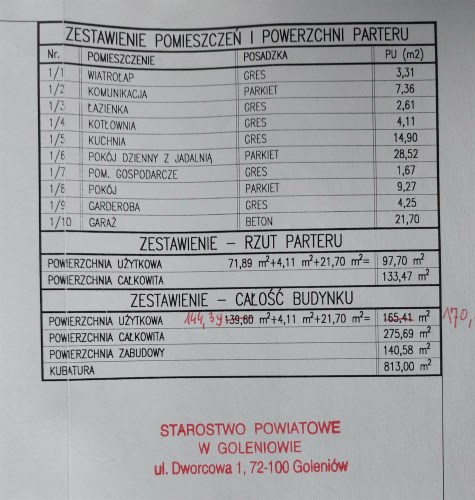 ZESTAWIENIE POMIESZCZEŃ I POWIERZCHNI PARTERU
Nr. POMIESZCZENIE POSADZKA PU (m2)
1/1 WIATROŁAP GRES 3,31
1/2 KOMUNIKACJA PARKIET 7,36
1/3 ŁAZIENKA GRES 2,61
1/4 KOTŁOWNIA GRES 4,11
1/5 KUCHNIA GRES 14,90
1/6 POKÓJ DZIENNY Z JADALNIĄ PARKIET 28,52
1/7 POM. GOSPODARCZE GRES 1,67
1/8 POKÓJ PARKIET 9,27
1/9 GARDEROBA GRES 4,25
1/10 GARAŻ BETON 21,70
ZESTAWIENIE – RZUT PARTERU
POWIERZCHNIA UŻYTKOWA 71,89 m²+4,11 m²+21,70 m²= 97,70 m²
POWIERZCHNIA CAŁKOWITA 133,47 m²
ZESTAWIENIE – CAŁOŚĆ BUDYNKU
POWIERZCHNIA UŻYTKOWA 144,39 139,60 m²+4,11 m²+21,70 m²= 165,41 m² 170,
POWIERZCHNIA CAŁKOWITA 275,69 m²
POWIERZCHNIA ZABUDOWY 140,58 m²
KUBATURA 813,00 m²
STAROSTWO POWIATOWE
W GOLENIOWIE
ul. Dworcowa 1, 72-100 Goleniów